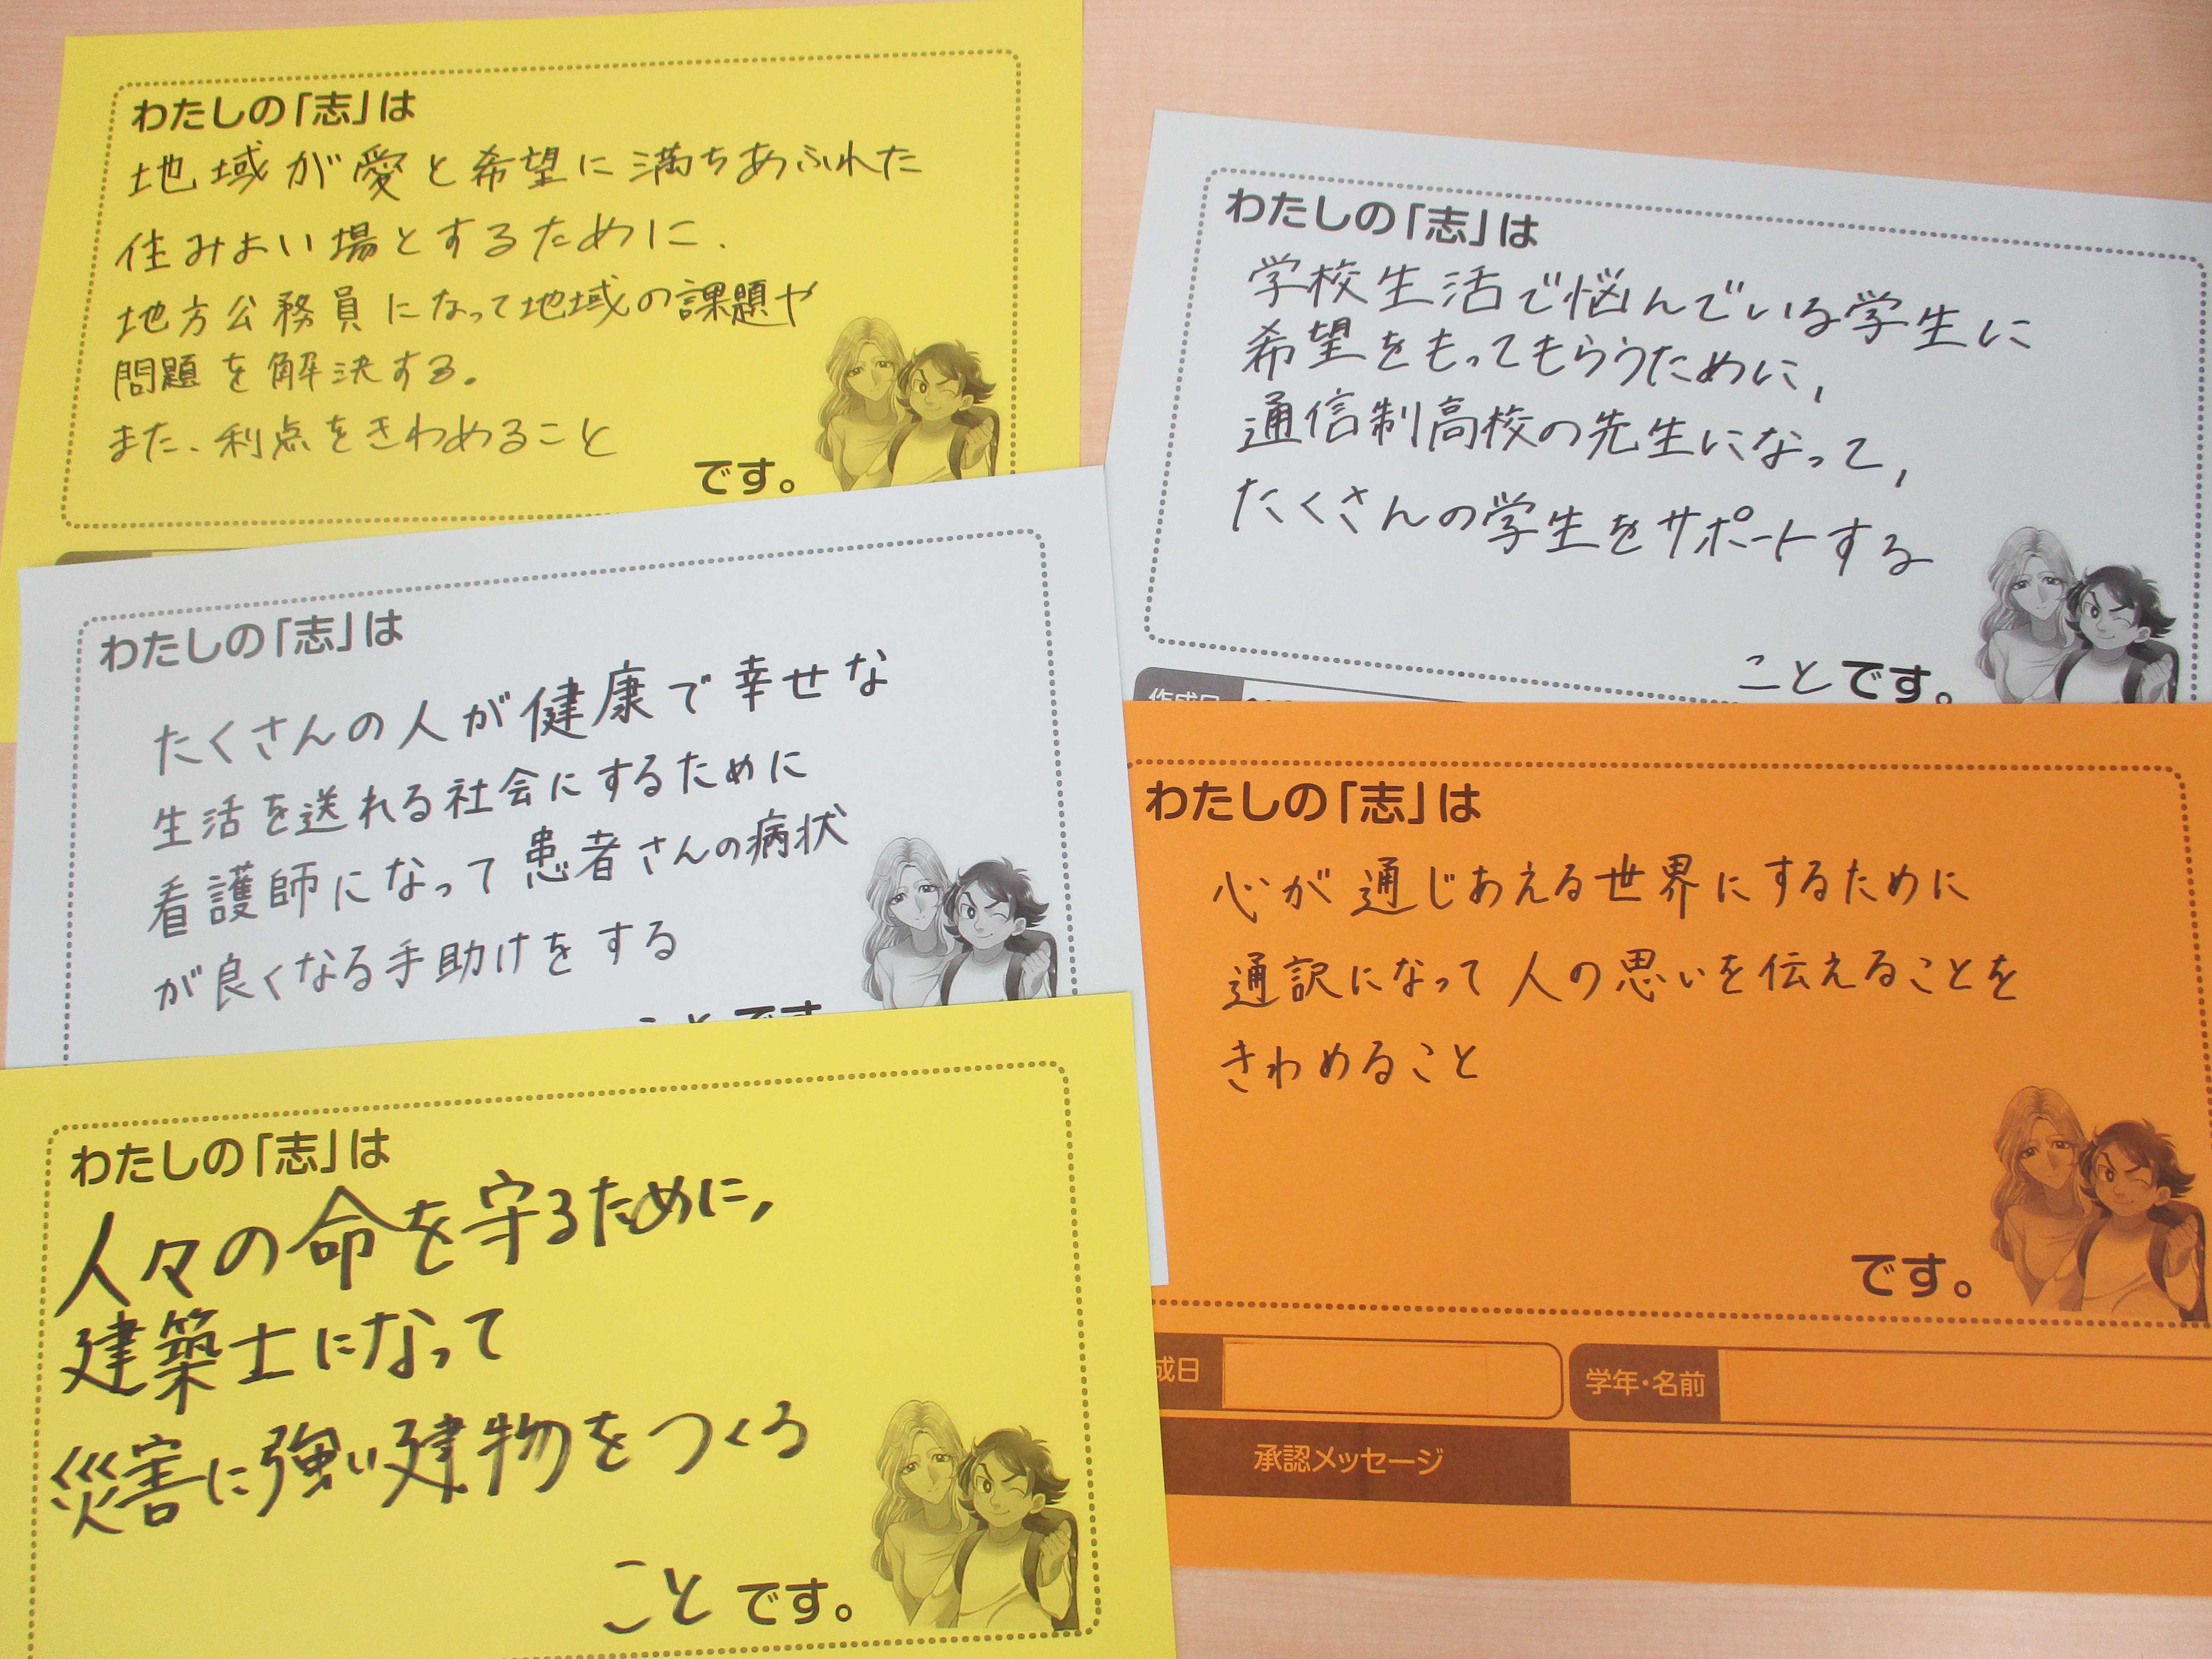 わたしの「志」は
地域が愛と希望に満ちあふれた
住みよい場とするために、
地方公務員になって地域の課題や
問題を解決する。
また、利点をきわめること
です。
わたしの「志」は
学校生活で悩んでいる学生に
希望をもってもらうために,
通信制高校の先生になって,
たくさんの学生をサポートする
ことです。
作成日
わたしの「志」は
たくさんの人が健康で幸せな
生活を送れる社会にするために
看護師になって患者さんの病状
が良くなる手助けをする
ことです
わたしの「志」は
心が通じあえる世界にするために
通訳になって人の思いを伝えることを
きわめること
です。
成日
学年・名前
承認メッセージ
わたしの「志」は
人々の命を守るために,
建築士になって
災害に強い建物をつくる
ことです。